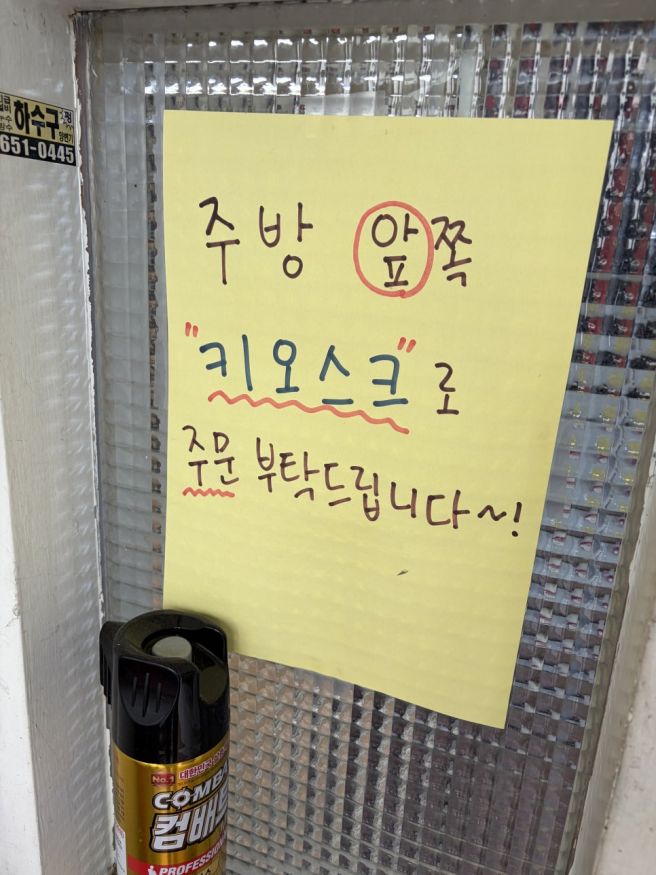 하수구
변기
651-0445
주방 앞쪽
"키오스크"로
주문 부탁드립니다~!
No.1 대한민국
COMBAT
컴배트
PROFESSIONAL